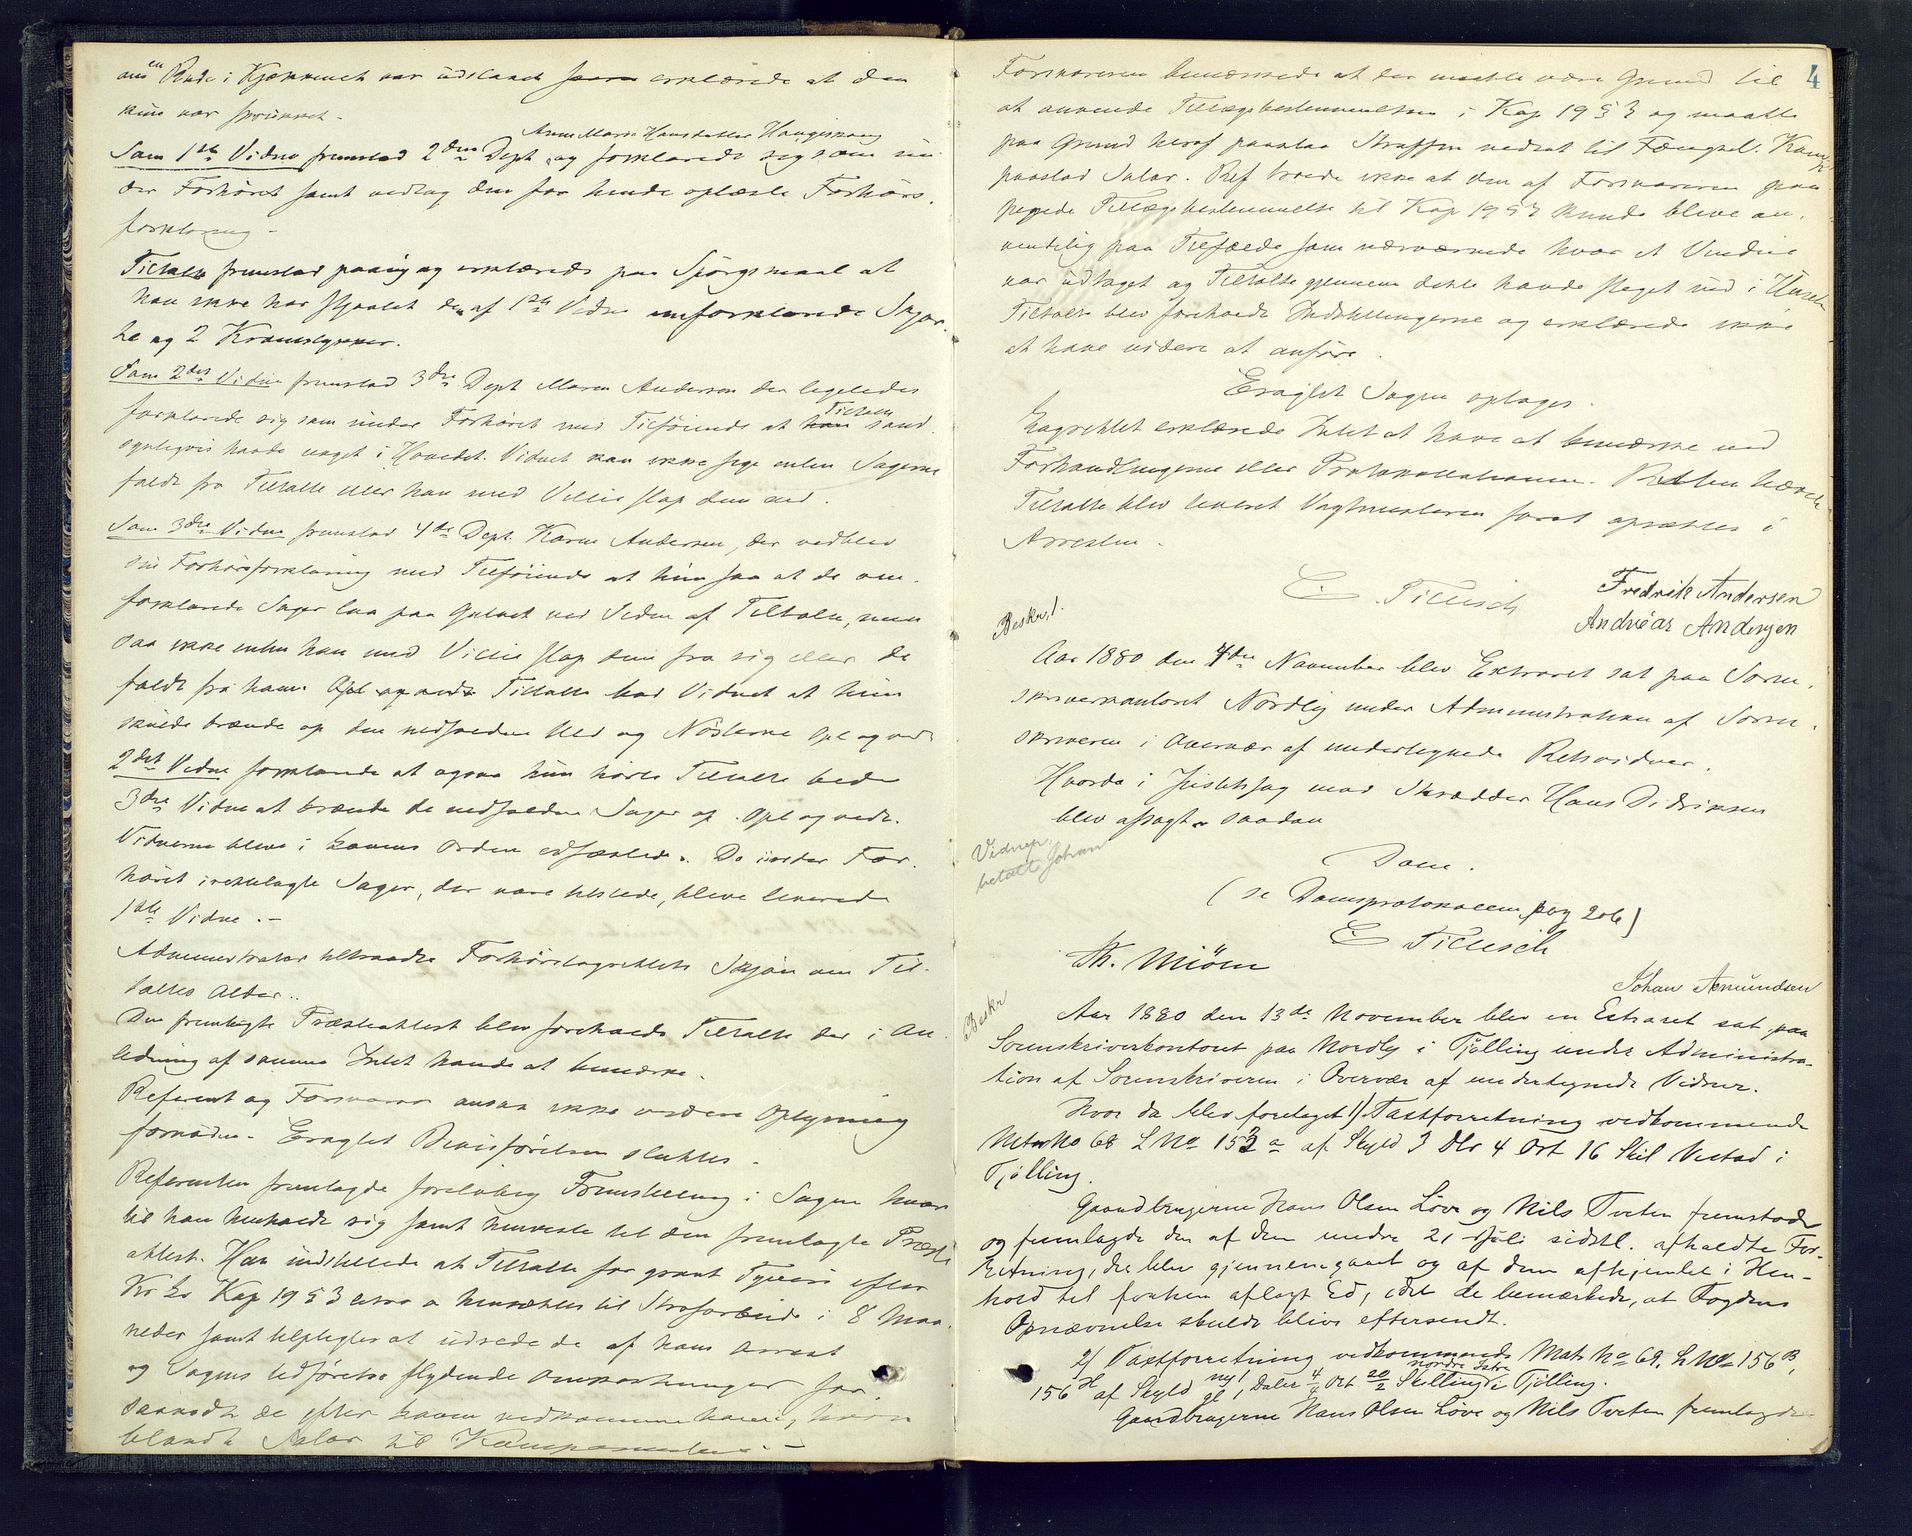 om en Rude i Kjøkkenet var udslaaet erklærede at den
kun var sprukket.
Som 1ste Vidne fremstod 2den Dept. Anne Marie Hansdatter Haugispong og forklarede sig som un-
der Forhøret samt vedtog den for hende oplæste Forhørs-
forklaring.
Tiltalte fremstod paany og erklærede paa Spørgsmaal at
han ikke har stjaalet de af 1ste Vidne omforklarede Skjor-
te og 2 Kravestykker.
Som 2det Vidne fremstod 3die Dept Maren Andersen der ligeledes
forklarede sig som under Forhøret med Tilføiende at Tiltalte sand-
synligvis havde noget i Hovedet. Vidnet kan ikke sige enten Sagerne
faldt fra Tiltalte eller han med Villie slap dem ned.
Som 3die Vidne fremstod 4de Dept. Karen Andersen, der vedblev
sin Forhørsforklaring med Tilføiende at hun saa at de om-
forklarede Sager laa paa Gulvet ved Siden af Tiltalte, men
saa ikke enten han med Villie slap dem fra sig eller de
faldt fra ham. Opl og vedt Tiltalte bad Vidnet at hun
skulde brænde op den nedfaldne Uld og Nøsterne Opl og vedt
2det Vidne forklarede at ogsaa hun hørte Tiltalte bede
3die Vidne at brænde de nedfaldne Sager op. Opl og vedt.
Vidnerne bleve i Lovens Orden edfæstede. De under For-
høret irettelagte Sager, der vare tilstede, bleve leverede
1ste Vidne.
Administrator tiltraadte Forhørslagrettets Skjøn om Til-
taltes Alder.
Den fremlagte Præsteattest blev foreholdt Tiltalte der i An-
ledning af samme Intet havde at bemærke.
Referent og Forsvarer ansaa ikke videre Oplysning
fornøden. Eragtet Bevisførelsen sluttes.
Referenten fremlagde foreløbig Fremstilling i Sagen hvor-
til han henholdt sig samt henviste til den fremlagte Præste-
attest. Han indstillede at Tiltalte for grovt Tyveri efter
Kr Lo Kap 19 § 3 hensættes til Strafarbeide i 8 Maa-
neder samt tilpligtes at udrede de af hans Arrest
og Sagens Udførelse flydende Omkostninger for
saavidt de efter Loven vedkomme ham, hvori-
blandt Salær til
Forsvareren bemærkede at der maatte være Grund til
at anvende Tillægsbestemmelsen i Kap 19 § 3 og maatte
paa Grund heraf paastaa Straffen nedsat til Fængsel. Han
paastod Salær. Ref troede ikke at den af Forsvareren paa-
pegede Tillægsbestemmelse til Kap 19 § 3 kunde blive an-
vendelig paa Tilfælde som nærværende hvor et Vindue
var udtaget og Tiltalte gjennem dette havde steget ind i Huset
Tiltalte blev foreholdt Indstillingerne og erklærede ikke
at have videre at anføre.
Eragtet Sagen optages.
Lagrettet erklærede Intet at have at bemærke ved
Forhandlingerne eller Protokollationen. Retten hævet
Tiltalte blev leveret Vagtmesteren forat opsættes i
Arresten.
E. Tillisch Fredrik Andersen
Andreas Andersen
Beskr. 1.
Aar 1880 den 4de November blev Extraret sat paa Soren-
skriverkontoret Nordby under Administration af Soren-
skriveren i Overvær af undertegnede Retsvidner.
Hvorda i Justitssag mod Skrædder Hans Didriksen
blev afsagt saadan
Vidnep.
betalt Johan
Dom.
(se Domsprotokollen pag 206)
E Tillisch
Th. Miøen
Johan Amundsen
Beskr
Aar 1880 den 13de November blev en Extraret sat paa
Sorenskriverkontoret paa Nordby i Tjølling under Administra-
tion af Sorenskriveren i Overvær af undertegnede Vidner.
Hvor da blev foretaget 1) Taxtforretning vedkommende
Matr No 68 L No 153 a af Skyld 3 Dlr 4 Ort 16 Skil Vestad i
Tjølling.
Gaardbrugerne Hans Olsen Løve og Nils Tveten fremstode
og fremlagde den af dem under 21 Juli sidstl. afholdte For-
retning, der blev gjennemgaaet og af dem afhjemlet i Hen-
hold til forhen aflagt Ed, idet de bemærkede, at Fogdens
Opnævnelse skulde blive eftersendt.
2) Taxtforretning vedkommende Matr No 69, L No 156 B,
156 H af Skyld ny 1 gl 1 Daler 4/4 Ort 20/2 Skilling nordre Istre i Tjølling.
Gaardbrugerne Hans Olsen Løve og Nils Tveten fremlagde
4